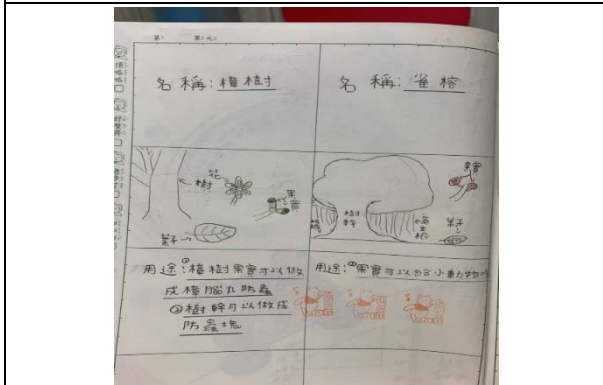 名稱:樟樹
名稱:雀榕
花
樹
果實
葉子
果實
樹幹
葉子
用途:①樟樹果實可以做
成樟腦丸防蟲
②樹幹可以做成
防蟲塊
用途:①果實可以給小動物吃